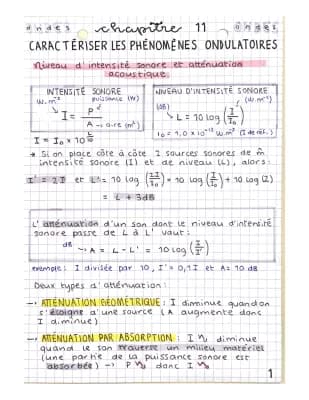 ondes chapitre 11 ondes
CARACTÉRISER LES PHÉNOMÈNES ONDULATOIRES
Niveau d'intensité sonore et atténuation
acoustique
INTENSITÉ SONORE
W.m⁻² puissance (W)
I = P / A → aire (m²)
I = I₀ × 10^(L/10)
NIVEAU D'INTENSITÉ SONORE
(dB) (W.m⁻²)
L = 10 log (I/I₀)
I₀ = 1,0 × 10⁻¹² W.m⁻² (I de réf.)
→ Si on place côte à côte 2 sources sonores de m̂
intensité sonore (I) et de niveau (L), alors:
I' = 2I et L' = 10 log (2I/I₀) = 10 log (I/I₀) + 10 log (2)
= L + 3dB
L'atténuation d'un son dont le niveau d'intensité
sonore passe de L à L' vaut:
dB → A = L - L' = 10 log (I/I')
exemple: I divisée par 10, I' = 0,1I et A = 10 dB
Deux types d'atténuation:
→ ATTÉNUATION GÉOMÉTRIQUE: I diminue quand on
s'éloigne d'une source (A augmente donc
I diminue)
→ ATTÉNUATION PAR ABSORPTION: I ↘ diminue
quand le son traverse un milieu matériel
(une partie de la puissance sonore est
absorbée) → P ↘ donc I ↘
1